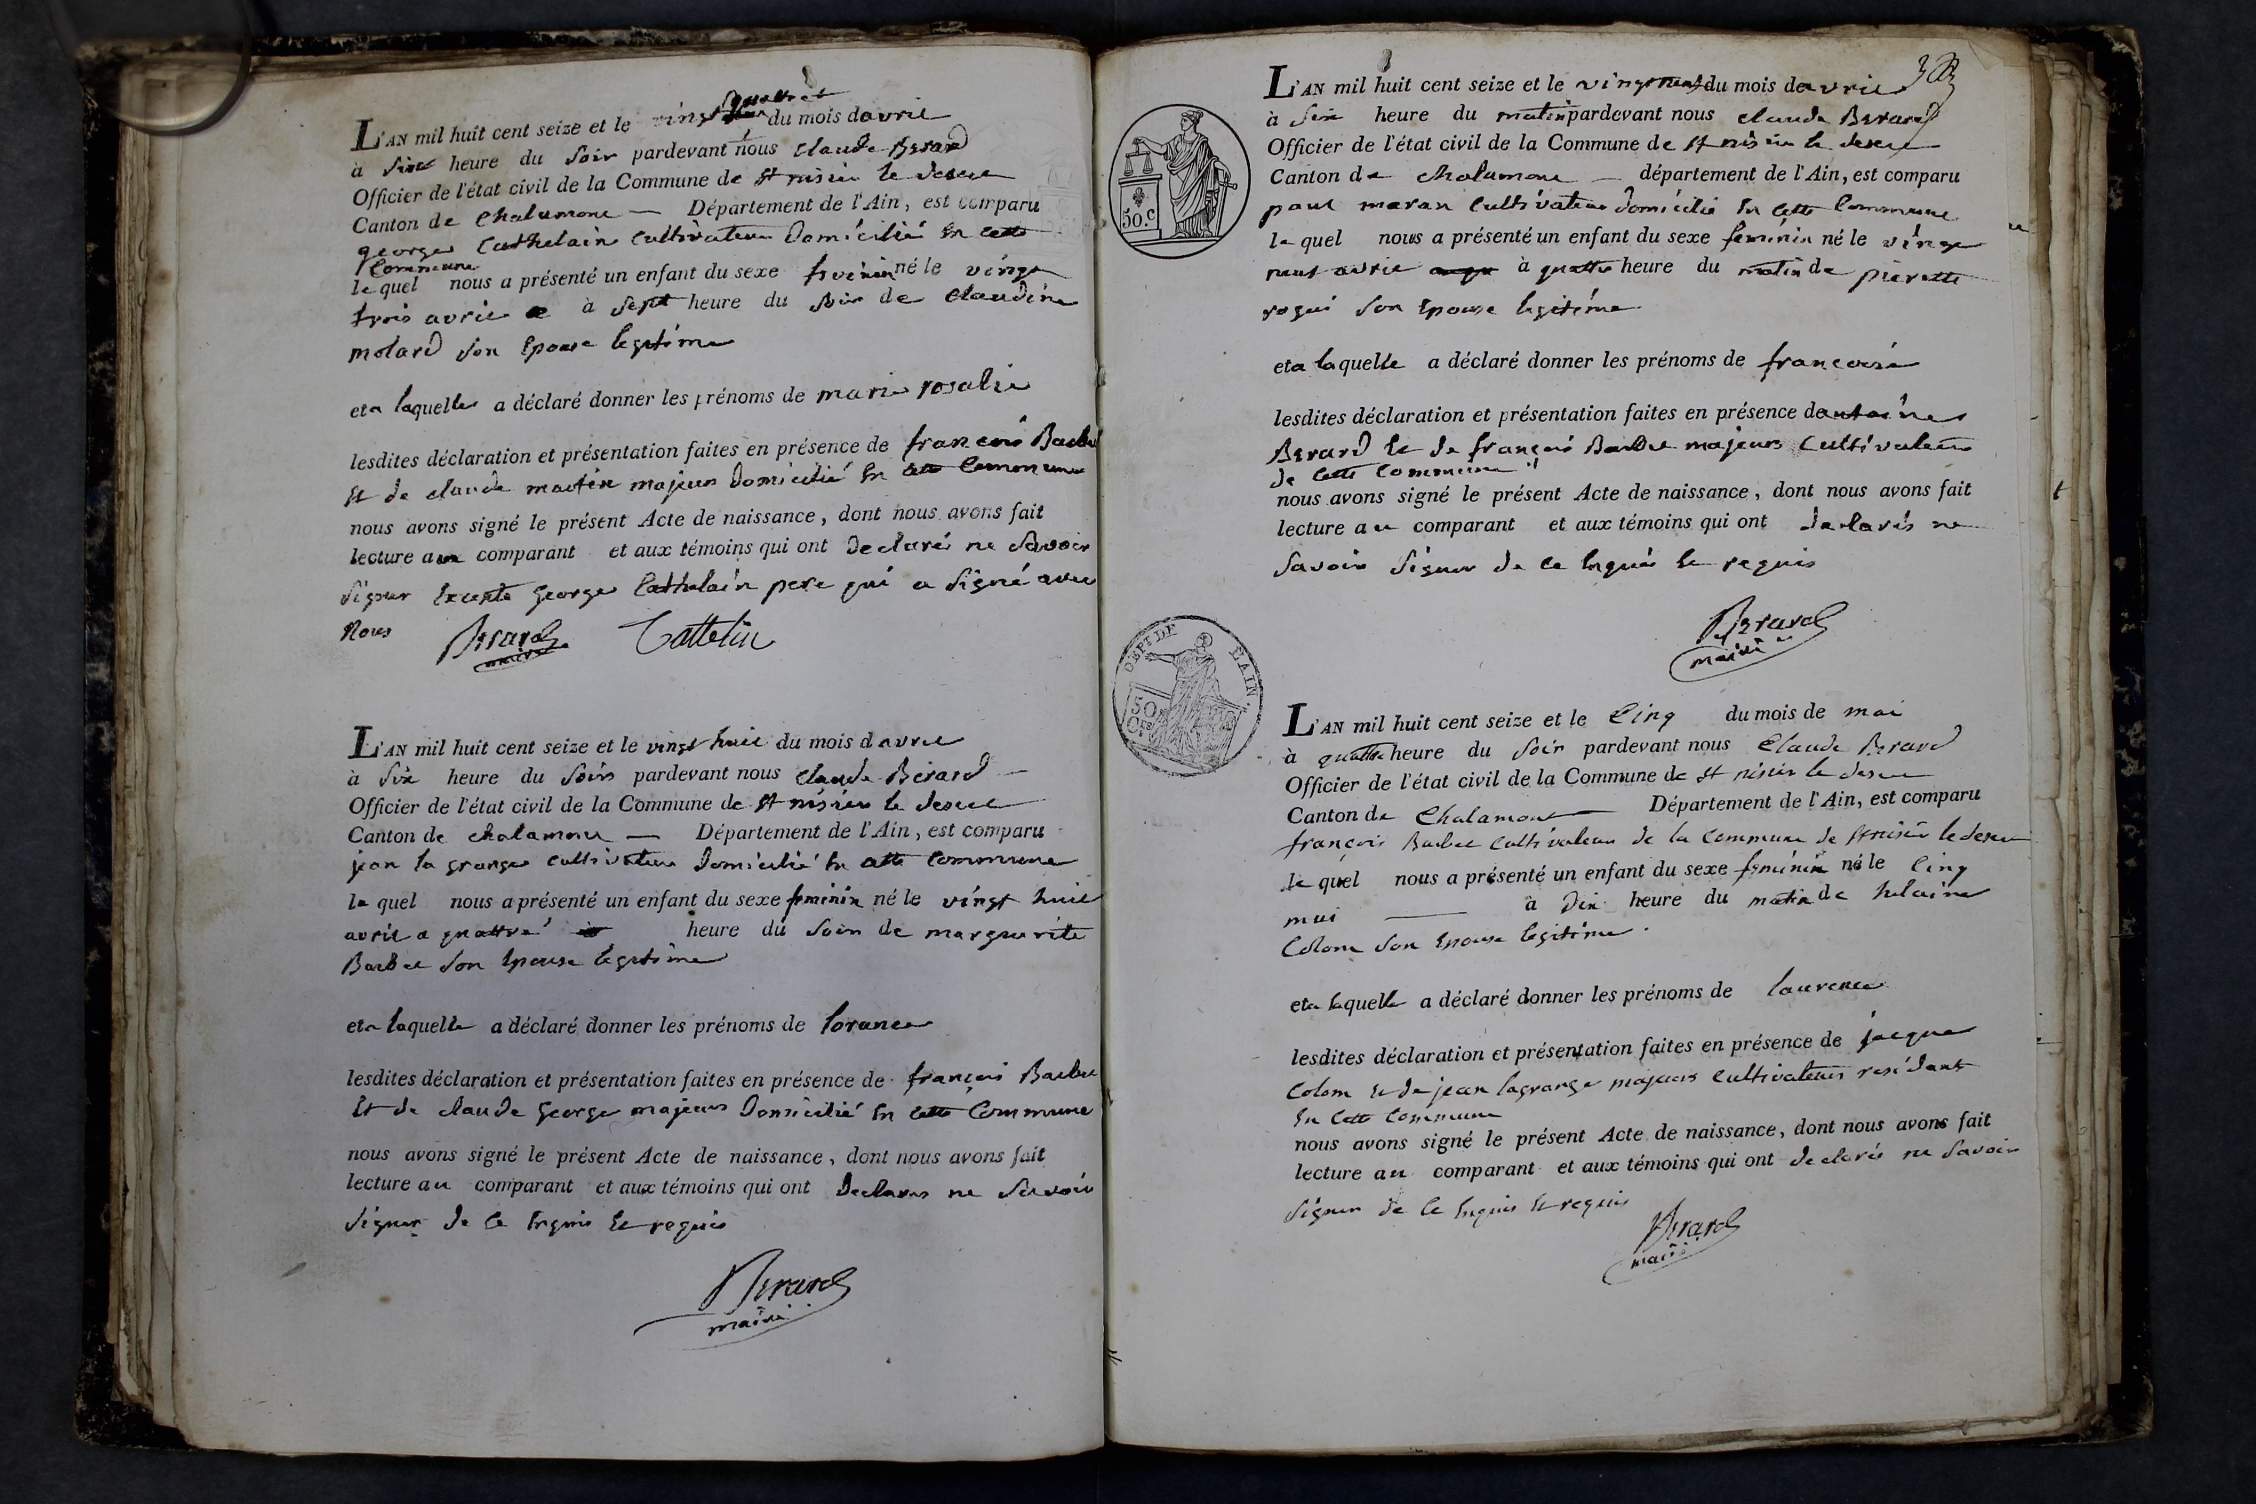 L'AN mil huit cent seize et le vingt quattre du mois davril
à six heure du soir pardevant nous claude Berard
Officier de l'état civil de la Commune de st nisier le desert
Canton de Chalamont — Département de l'Ain, est comparu
george Cathelain Cultivateur Domicilié En cette
Commune
le quel nous a présenté un enfant du sexe né le vingt
trois avril à sept heure du soir de Claudine
molard son Epouse legitime
eta laquelle a déclaré donner les prénoms de marie rosalie
lesdites déclaration et présentation faites en présence de françois Barbet
Et de claude martin majeurs Domicilié En cette Commune
nous avons signé le présent Acte de naissance, dont nous avons fait
lecture au comparant et aux témoins qui ont Declarés ne Savoir
Signer Excepté George Cathelain pere qui a Signé avec
Nous Berard Cattelin
maire
L'AN mil huit cent seize et le vingt huit du mois davril
à Six heure du Soir pardevant nous claude Bérard —
Officier de l'état civil de la Commune de st nisier le desert
Canton de chalamont — Département de l'Ain, est comparu
jean la grange cultivateur Domicilié En cette Commune
le quel nous a présenté un enfant du sexe feminin né le vingt huit
avril a quattre heure du Soir de marguerite
Barbet Son Epouse legitime
eta laquelle a déclaré donner les prénoms de lorance
lesdites déclaration et présentation faites en présence de françois Barbet
Et de claude George majeurs Domicilié En cette Commune
nous avons signé le présent Acte de naissance, dont nous avons fait
lecture au comparant et aux témoins qui ont Declarés ne Savoir
Signer de ce Enquis Et requis
Berard
maire
L'AN mil huit cent seize et le vingt neuf du mois davril
à Six heure du matin pardevant nous claude Berard
Officier de l'état civil de la Commune de st nisier le desert
Canton de chalamont — département de l'Ain, est comparu
paul maran Cultivateur Domicilié En cette Commune
le quel nous a présenté un enfant du sexe feminin né le vingt
neuf avril à quattre heure du matin de pierrette
rogui Son Epouse legitime
eta laquelle a déclaré donner les prénoms de francoise
lesdites déclaration et présentation faites en présence de antoine
Berard Et de françois Barbet majeurs Cultivateurs
de cette Commune
nous avons signé le présent Acte de naissance, dont nous avons fait
lecture au comparant et aux témoins qui ont declarés ne
Savoir Signer de ce Enquis Et requis
Berard
maire
50.C
DEPT DE L'AIN
50
Ces
L'AN mil huit cent seize et le Cinq du mois de mai
à quattre heure du Soir pardevant nous Claude Berard
Officier de l'état civil de la Commune de st nisier le desert
Canton de Chalamont — Département de l'Ain, est comparu
françois Barbet Cultivateur de la Commune de st nisier le desert
le quel nous a présenté un enfant du sexe feminin né le Cinq
mai — à Dix heure du matin de helaine
Colom Son Epouse legitime.
eta laquelle a déclaré donner les prénoms de laurence
lesdites déclaration et présentation faites en présence de jacque
Colom Et de jean lagrange majeurs Cultivateurs residant
En Cette Commune
nous avons signé le présent Acte de naissance, dont nous avons fait
lecture au comparant et aux témoins qui ont declarés ne Savoir
Signer de ce Enquis Et requis
Berard
maire